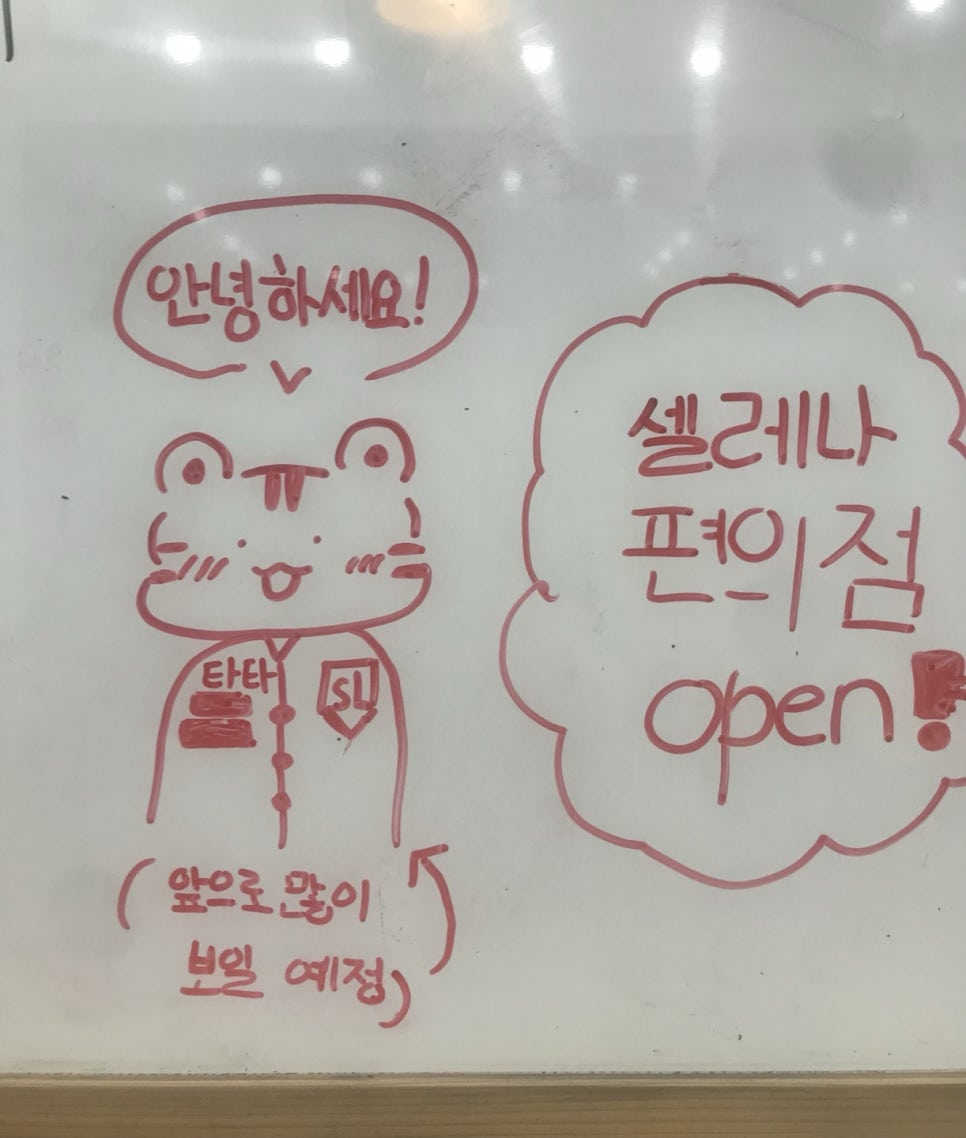 안녕하세요!
타타
SL
(앞으로 많이
보일 예정)
셀레나
편의점
open!